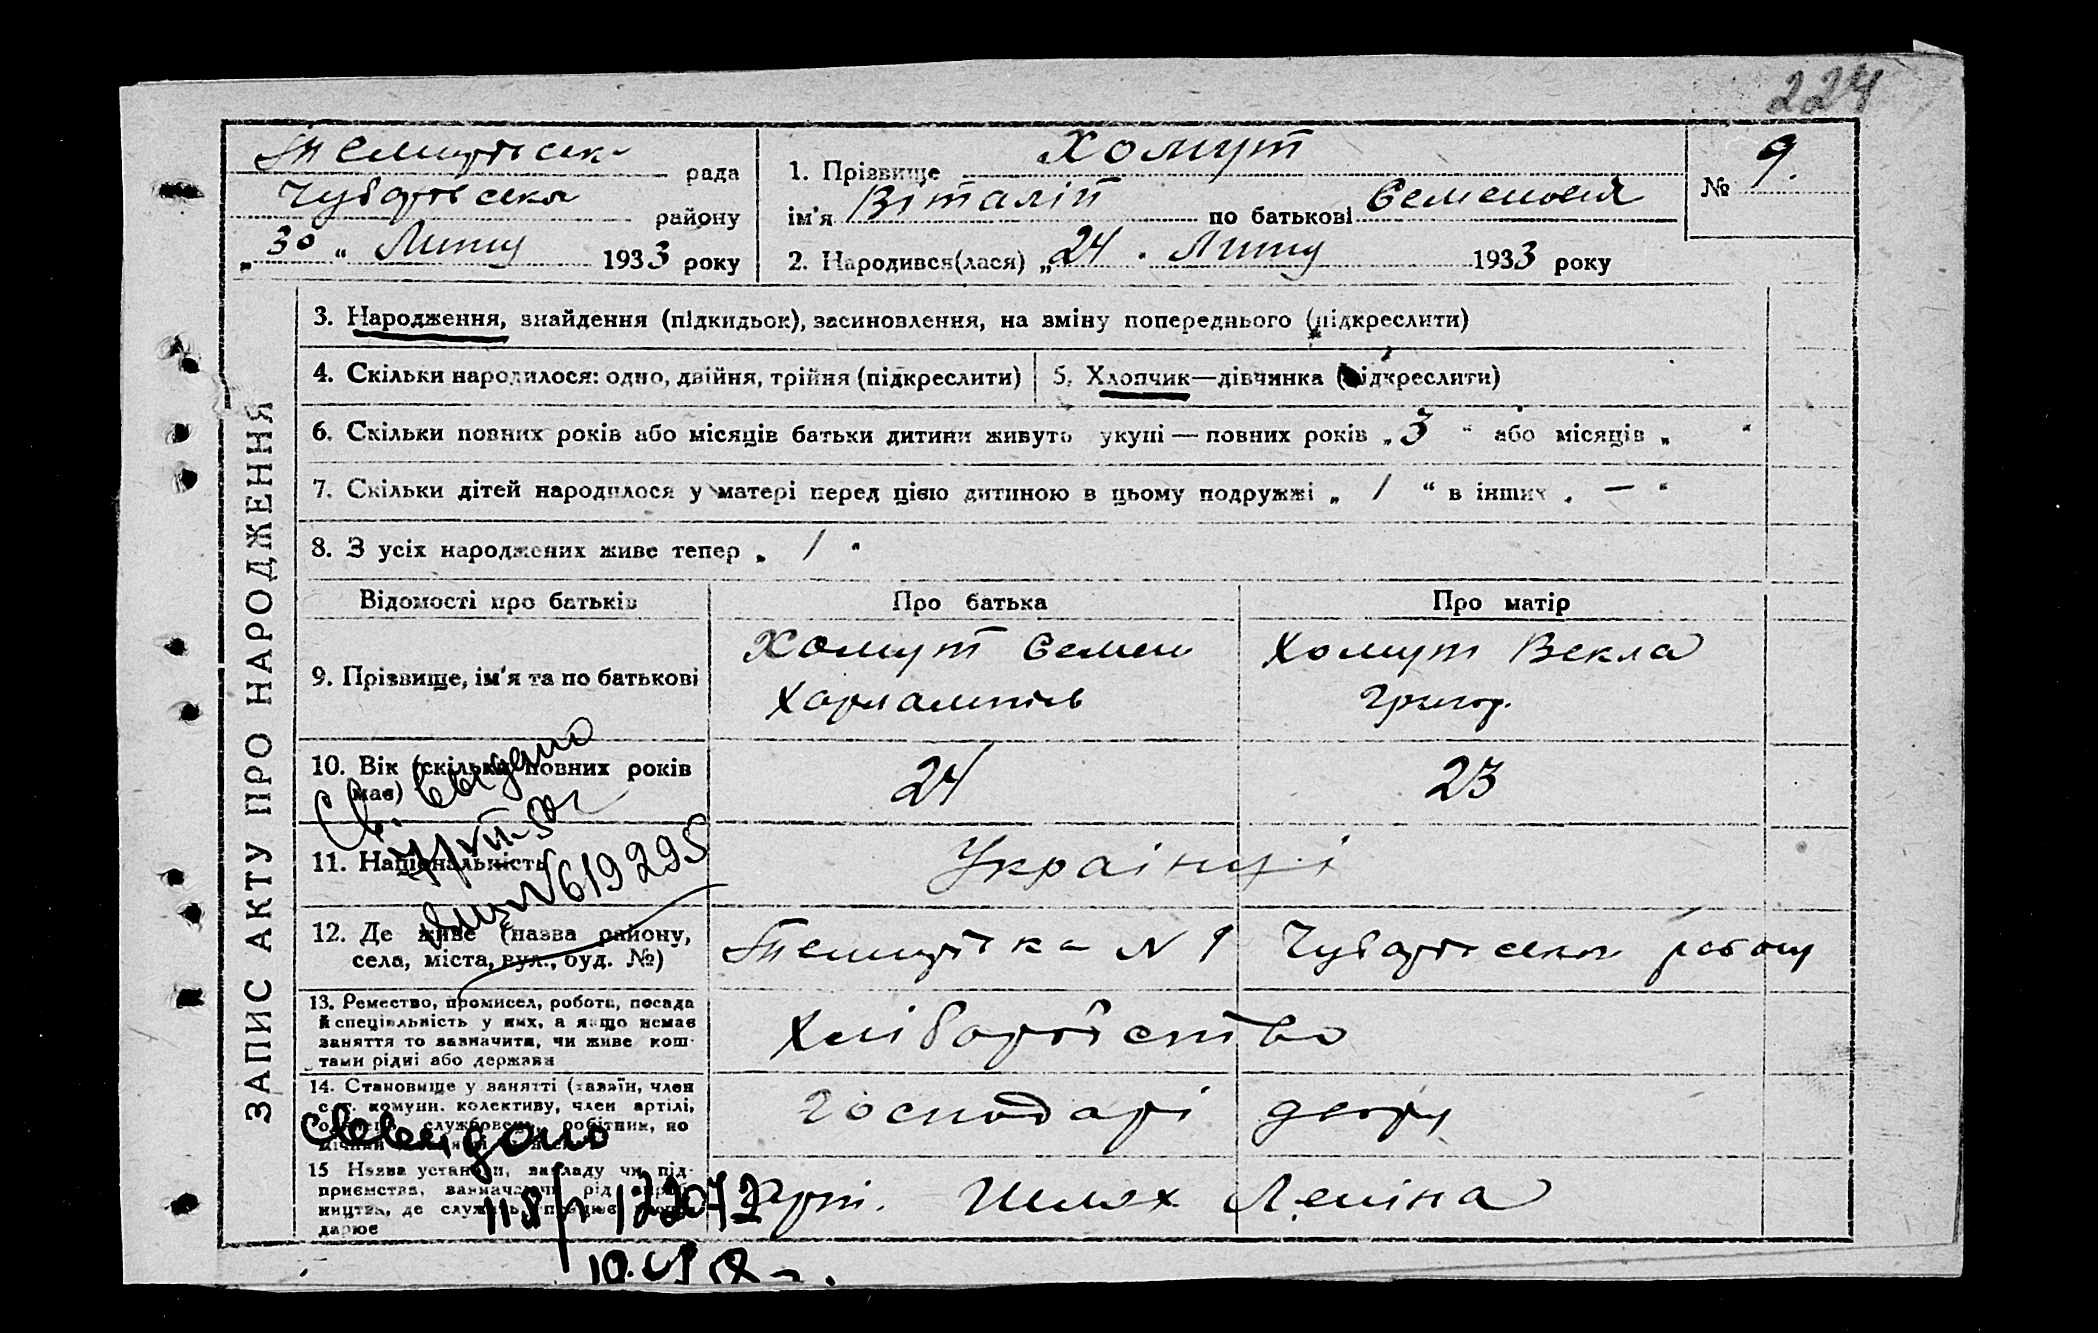 224
рада
Чубарівськ
району
„30“ Липцу 1933 року
1. Прізвище Хомут
ім'я Віталій по батькові Семенович
№ 9.
2. Народився(лася) „24 Липцу 1933 року
ЗАПИС АКТУ ПРО НАРОДЖЕННЯ
3. Народження, знайдення (підкидьок), засиновлення, на зміну попереднього (підкреслити)
4. Скільки народилося: одно, двійня, трійня (підкреслити)
5. Хлопчик—дівчинка (підкреслити)
6. Скільки повних років або місяців батьки дитини живуть укупі — повних років „3“ або місяців „ “
7. Скільки дітей народилося у матері перед цією дитиною в цьому подружжі „ 1 “ в інших „ — “
8. З усіх народжених живе тепер „ 1 “
Відомості про батьків
Про батька
Про матір
9. Прізвище, ім'я та по батькові
Хомут Семен
Харлампів
Хомут Векла
Григор.
10. Вік (скільки повних років
має)
24
23
11. Національність
Українці
12. Де живе (назва району,
села, міста, вул., буд. №)
№ 1 Чубарівськ району
13. Ремество, промисел, робота, посада
й спеціяльність у них, а якщо немає
заняття то зазначити, чи живе кош-
тами рідні або держави
Хліборобство
14. Становище у занятті (хазяїн, член
с.-г. комуни, колективу, член артілі,
службовець, робітник, по
Господарі двору
15 Назва установи, закладу чи під-
приємства, зазначаючи рід вироб
ництва, де служить, працює
дарює
Арт. Шлях Леніна
Св. выдано
№ 619295
выдано
122072